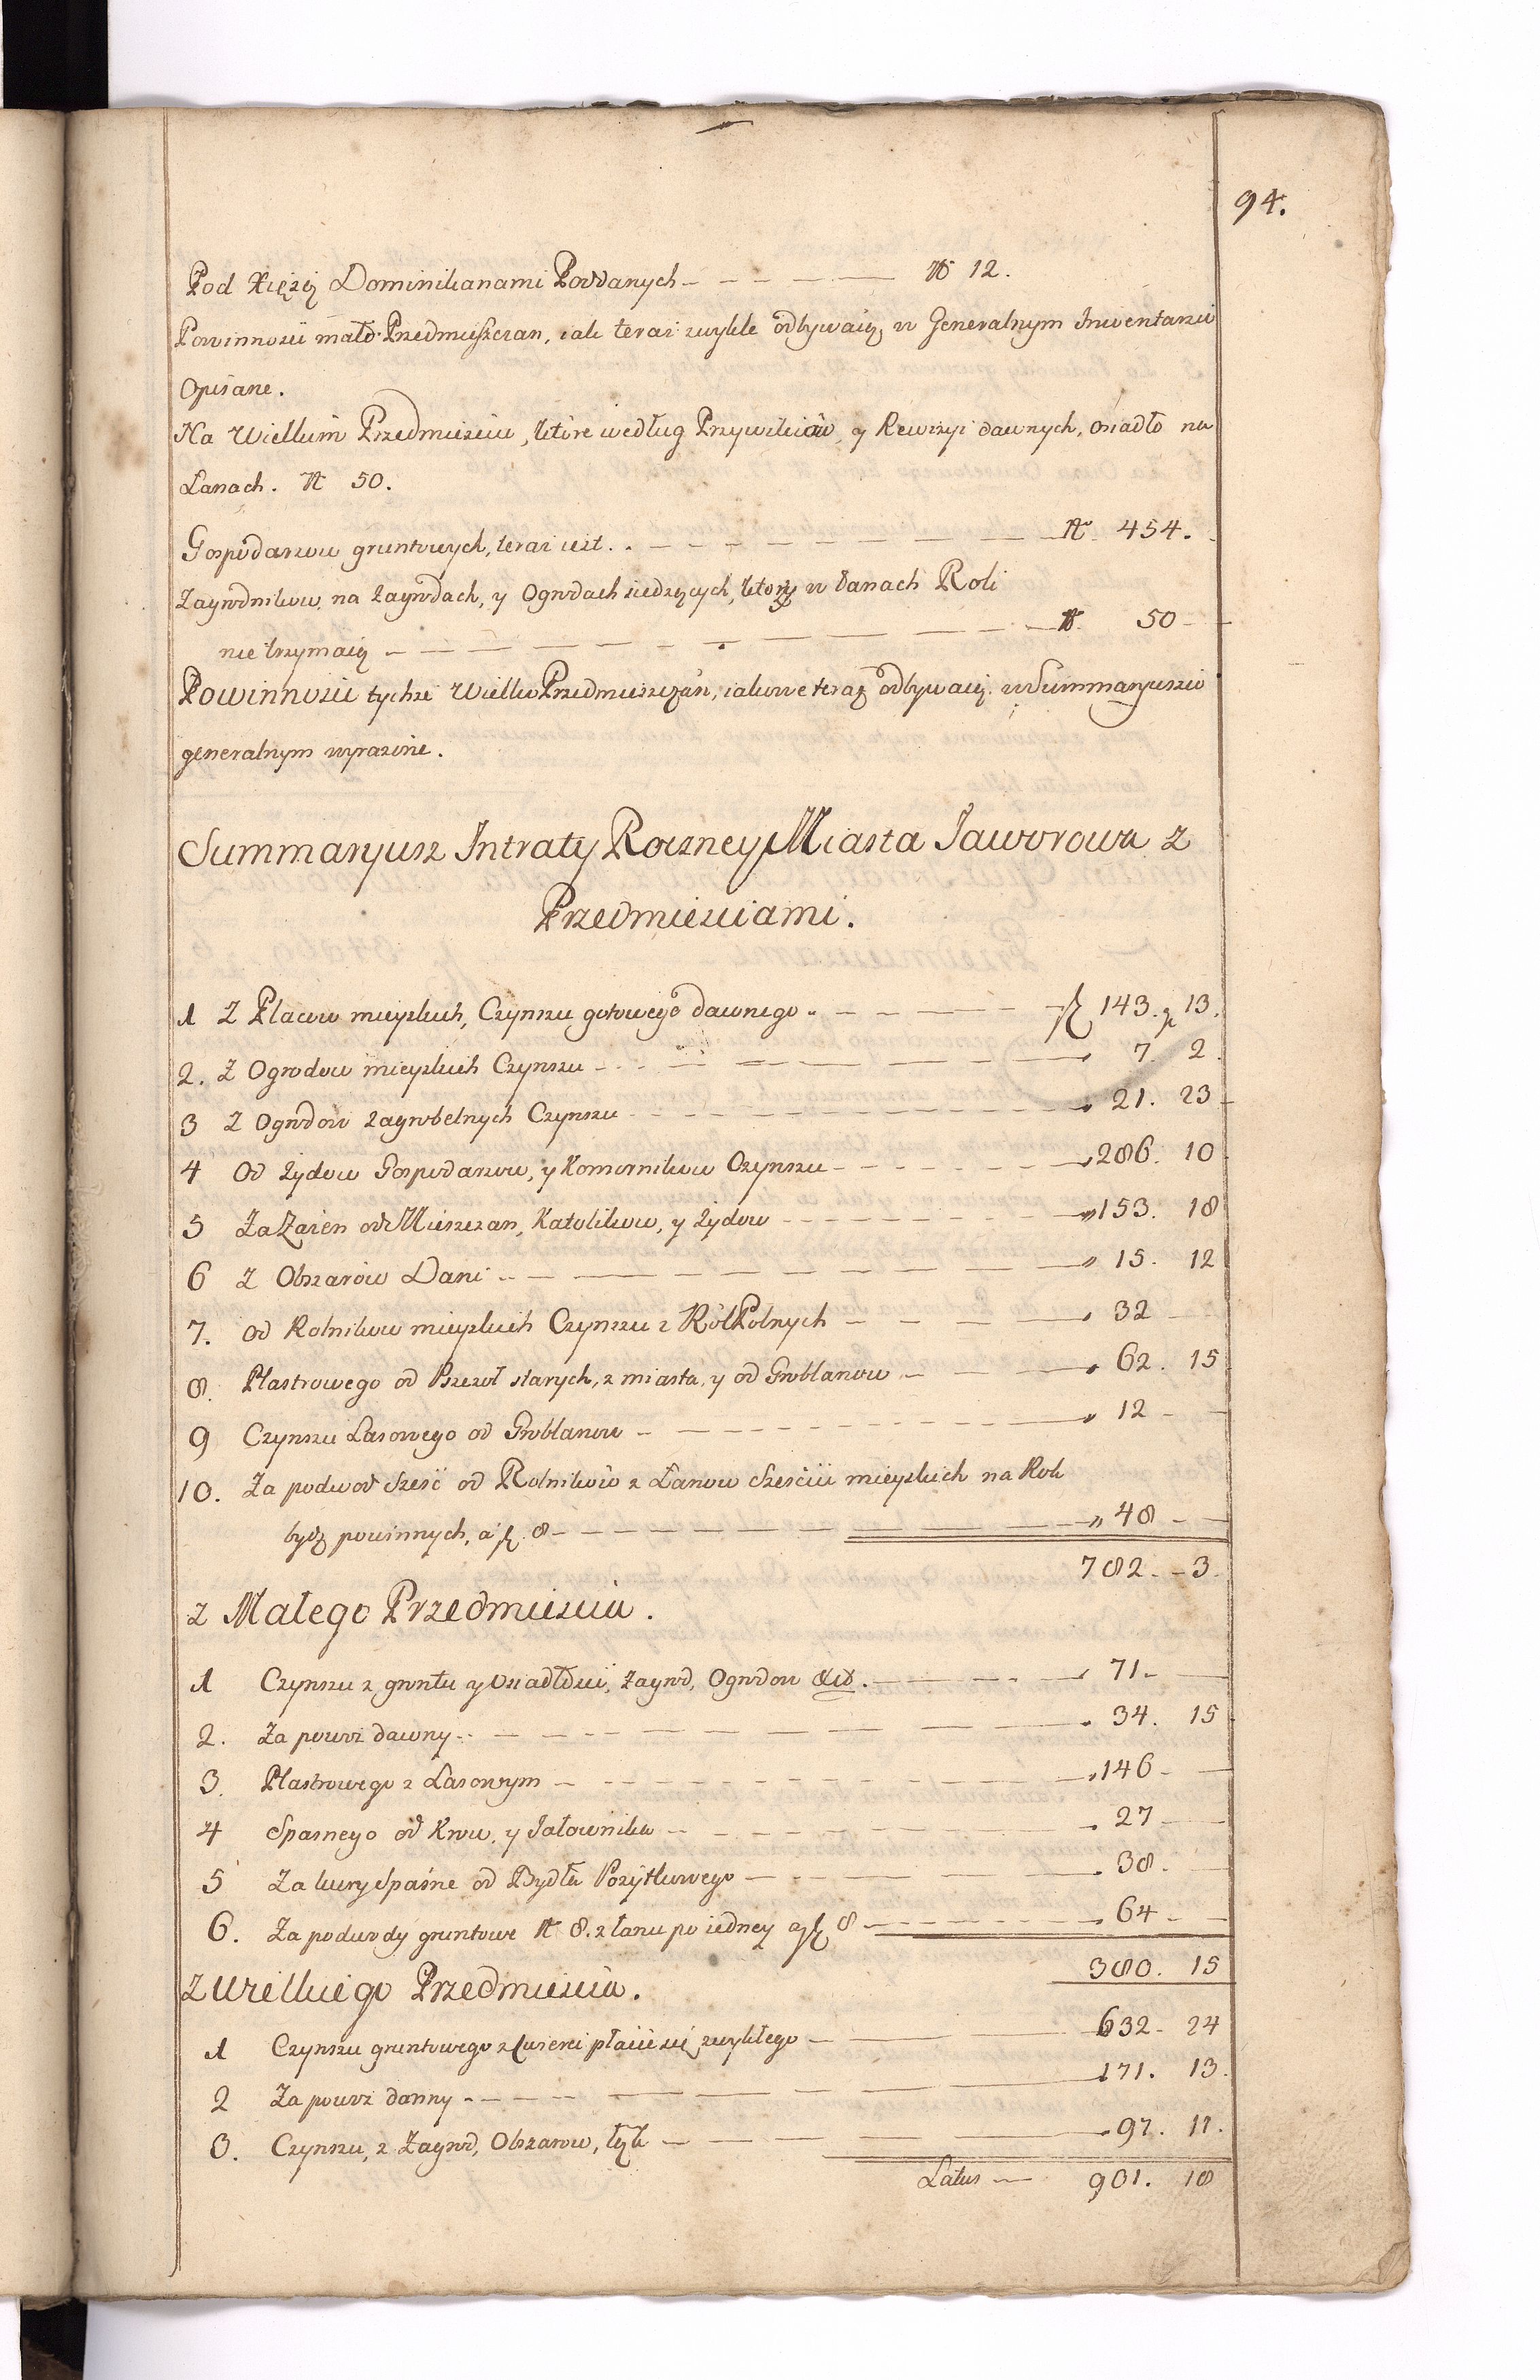 94.
Pod Xiężej Dominikanami Poddanych — № 12.
Powinności mało Przedmieszczan, iak teraz zwykle odbywaią w Generalnym Inwentarzu
Opisane.
Na Wielkim Przedmieściu, które według Przywileiów, y Rewizyi dawnych, osiadło na
Łanach. № 50.
Gospodarzow gruntowych, teraz iest . . — № 454.
Zagrodnikow na zagrodach, y Ogrodach siedzących, ktorzy w łanach Roli
nie trzymaią — № 50
Powinności tychże Wielko Przedmieszczan, iakowe teraz odbywaią w Summaryuszu
generalnym wyrażone.
Summaryusz Intraty Roczney Miasta Jaworowa z
Przedmieściami.
1 Z Placow mieyskich, Czynszu gotowego dawnego — f 143. g 13.
2. Z Ogrodow mieyskich Czynszu — 7. 2.
3 Z Ogrodow zagrobelnych Czynszu — 21. 23
4 Od Żydow Gospodarzow, y Komornikow Czynszu — 286. 10
5 Za Zaien od Mieszczan, Katolikow, y Żydow — 153. 18
6 Z Obszarów Dani — 15. 12
7. od Rolnikow mieyskich Czynszu z Ról Polnych — 32
8. Plastrowego od Pszczoł starych, z miasta, y od Groblanow — 62. 15
9 Czynszu Lasowego od Groblanow — 12
10. Za podwod sześć od Rolnikow z Łanow sześciu mieyskich na Rok
bydź powinnych, a f. 8 — 48
782. 3.
Z Małego Przedmieścia.
1 Czynszu z gruntu y Osiadłości, Zagrod, Ogrodow &c. — 71
2. Za powoz dawny — 34. 15
3. Plastrowego z Lasowym — 146
4 Spasnego od Krow, y Jałownika — 27
5 Za kury Spaśne od Bydła Pożytkowego — 38.
6. Za podwody gruntowe № 8. z łanu po iedney a f 8 — 64
380. 15
Z Wielkiego Przedmieścia.
1 Czynszu gruntowego z ćwierci płacić się zwykłego — 632. 24
2 Za powoz danny — 171. 13.
3. Czynszu, z Zagrod, Obszarow, łąk — 97. 11.
Latus — 901. 18